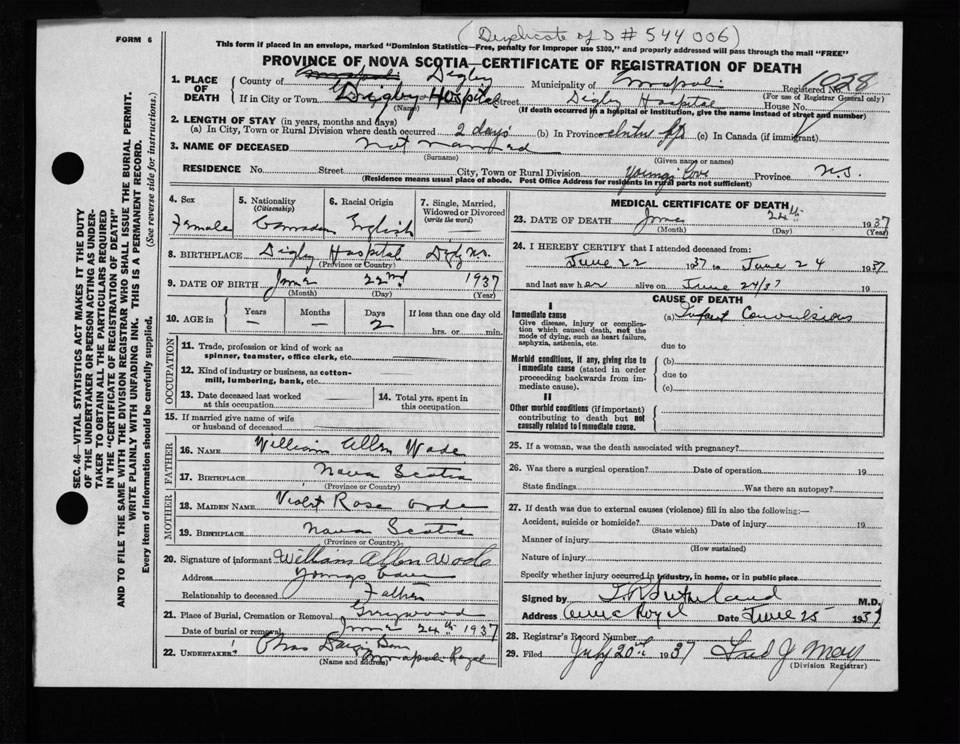 (Duplicate of D # 544006)
FORM 6
This form if placed in an envelope, marked "Dominion Statistics—Free, penalty for improper use $300," and properly addressed will pass through the mail "FREE"
PROVINCE OF NOVA SCOTIA—CERTIFICATE OF REGISTRATION OF DEATH
1. PLACE OF DEATH County of Digby Municipality of Registered No. 1028
(For use of Registrar General only)
If in City or Town Digby Hospital Street, Digby Hospital House No.
(Name) (If death occurred in a hospital or institution, give the name instead of street and number)
2. LENGTH OF STAY (in years, months and days)
(a) In City, Town or Rural Division where death occurred 2 days (b) In Province entire life (c) In Canada (if immigrant)
3. NAME OF DECEASED Not named
(Surname) (Given name or names)
RESIDENCE No. Street City, Town or Rural Division Youngs Cove Province N.S.
(Residence means usual place of abode. Post Office Address for residents in rural parts not sufficient)
4. Sex Female
5. Nationality (Citizenship) Canadian
6. Racial Origin English
7. Single, Married, Widowed or Divorced (write the word) —
8. BIRTHPLACE Digby Hospital
(Province or Country)
9. DATE OF BIRTH June 22nd 1937
(Month) (Day) (Year)
10. AGE in Years — Months — Days 2 If less than one day old hrs. or min.
OCCUPATION
11. Trade, profession or kind of work as spinner, teamster, office clerk, etc.
12. Kind of industry or business, as cotton-mill, lumbering, bank, etc.
13. Date deceased last worked at this occupation
14. Total yrs. spent in this occupation
15. If married give name of wife or husband of deceased
FATHER
16. NAME William Allen Wade
17. BIRTHPLACE Nova Scotia
(Province or Country)
MOTHER
18. MAIDEN NAME Violet Rose
19. BIRTHPLACE Nova Scotia
(Province or Country)
20. Signature of informant William Allen Wade
Address Youngs Cove
Relationship to deceased Father
21. Place of Burial, Cremation or Removal
Date of burial or removal June 24th 1937
22. UNDERTAKER Annapolis Royal
(Name and address)
MEDICAL CERTIFICATE OF DEATH
23. DATE OF DEATH June 24th 1937
(Month) (Day) (Year)
24. I HEREBY CERTIFY that I attended deceased from:
June 22 1937 to June 24 1937
and last saw her alive on June 24/37 19
CAUSE OF DEATH
I
Immediate cause (a) Infant Convulsions
Give disease, injury or complication which caused death, not the mode of dying, such as heart failure, asphyxia, asthenia, etc.
due to
Morbid conditions, if any, giving rise to immediate cause (stated in order proceeding backwards from immediate cause).
(b)
due to
(c)
II
Other morbid conditions (if important) contributing to death but not causally related to immediate cause.
25. If a woman, was the death associated with pregnancy?
26. Was there a surgical operation? Date of operation 19
State findings Was there an autopsy?
27. If death was due to external causes (violence) fill in also the following:—
Accident, suicide or homicide? Date of injury 19
(State which)
Manner of injury
(How sustained)
Nature of injury
Specify whether injury occurred in industry, in home, or in public place
Signed by Sutherland M.D.
Address Annap Royal Date June 25 1937
28. Registrar's Record Number
29. Filed July 20th 1937 Fred J. May
(Division Registrar)
SEC. 46—VITAL STATISTICS ACT MAKES IT THE DUTY
OF THE UNDERTAKER OR PERSON ACTING AS UNDER-
TAKER TO OBTAIN ALL THE PARTICULARS REQUIRED
IN THE "CERTIFICATE OF REGISTRATION OF DEATH"
AND TO FILE THE SAME WITH THE DIVISION REGISTRAR WHO SHALL ISSUE THE BURIAL PERMIT.
WRITE PLAINLY WITH UNFADING INK. THIS IS A PERMANENT RECORD.
Every item of information should be carefully supplied. (See reverse side for instructions.)